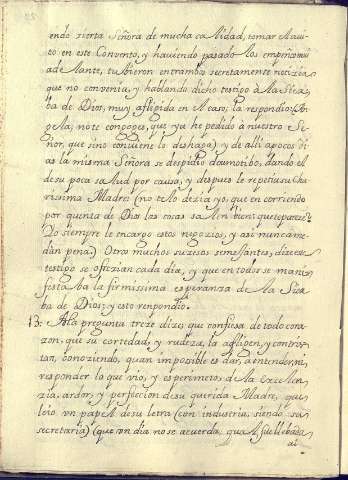 endo zierta Señora de mucha calidad, tomar Auui-
to en este Convento, y hauiendo pasado los empeños mui
adelante, tubieron entrambas secretamente notizia
que no convenia, y hablando dicho testigo à la Sier-
ba de Dios, muy afligida en el caso, la respondio: An-
gela, no te congojes, que ya he pedido a nuestro Se-
ñor, que sino conviene lo deshaga; y de alli a pocos di-
as la misma Señora se despidio de un todo, dando el
de su poca salud por causa, y despues le repetia su Cha-
rissima Madre (no te lo dezia yo, que en corriendo
por quenta de Dios las cosas salen bien: que te pareze?
Yo siempre le encargo estos negozios, y asi nunca me
dan pena.) Otros muchos suzesos semejantes, dize este
testigo se ofrezian cada dia, y que en todos se mani-
festaba la firmissima esperanza de la Sier-
ba de Dios; y esto respondio.
13: A la pregunta treze dize; que confiesa de todo cora-
zon, que su cortedad, y rudeza, la afligen, y contris-
tan, conoziendo, quan imposible es dar, a entender, ni
responder lo que vio, y esperimento de la Excelen-
zia, ardor, y perfeccion de su querida Madre, que
leio vn papel de su letra (con industria, siendo se-
cretaria) (que vn dia no se acuerda, qual fue llebada
al